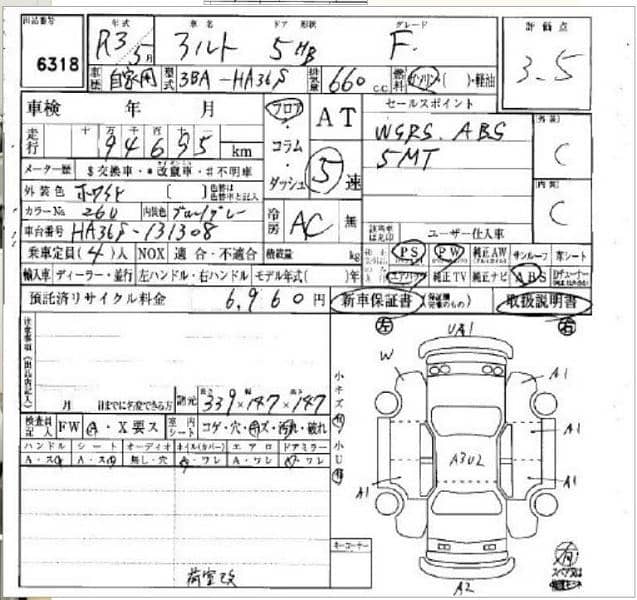 出品番号 年式 車名 ドア形状 グレード 評価点
6318 R3 5月 アルト 5HB F. 3.5
車歴 自家用 型式 3BA-HA36S 排気量 660 cc 燃料 ガソリン・( )・軽油
車検 年 月 フロア AT セールスポイント
走行 十 万 千 百 十 94695 km ・コラム・ダッシュ 5速 WSRS. ABS
5MT
外装 C
メーター歴 $交換車・*改竄車・#不明車
外装色 ホワイト [ ] 色替は色替車と記入 内装 C
カラーNo 260 内装色 ブルー/グレー 冷房 AC 無
車台番号 HA36S-131308 該当車は○印 ユーザー仕入車
乗車定員(4)人 NOX 適合・不適合 積載量 kg PS PW 純正AW サンルーフ 革シート
輸入車 ディーラー・並行 左ハンドル・右ハンドル モデル年式( )年 エアバッグ 純正TV 純正ナビ ABS
預託済リサイクル料金 6,960円 新車保証書 取扱説明書
左 右
注意事項(出品店記入)
月 日までに名変できる方 諸元 長さ 339 × 幅 147 × 高さ 147
検査員記入 FW A・X要ス 室内シート コゲ・穴・キズ・汚れ・破れ
ハンドル シート オーディオ ホイル(カバー) エアロ ドアミラー
A・スレ A・スレ 無し・穴 A・ワレ A・ワレ A・ワレ
荷室 改
小キズ 小U
UA1
W A1
A1
A3U2
A1 A1
A2
キーコーナー
有
スペアタイヤ